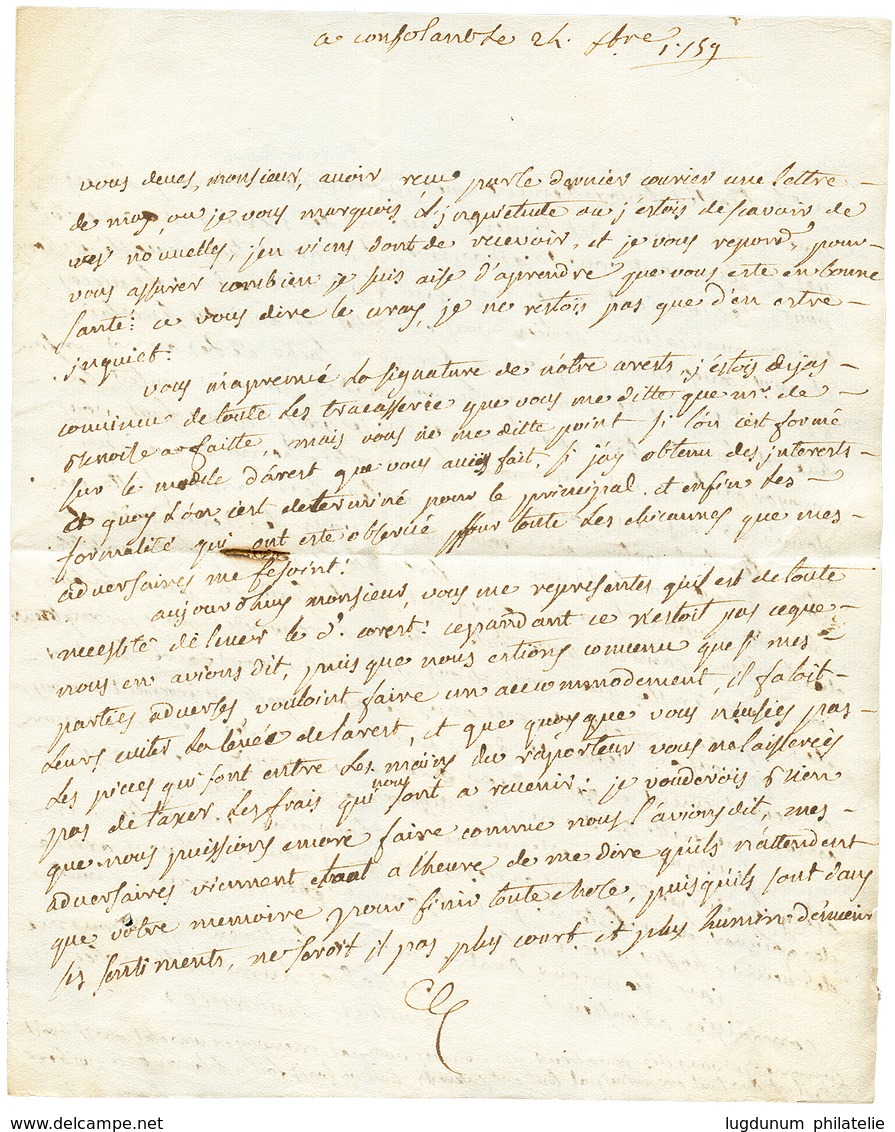 a confolant le 24. 8bre 1759
vous deves, monsieur, avoir reçu par le dernier courier une lettre
de moy, ou je vous marquois l'jnquietude ou j'estois de scavoir de
vos nouvelles, j'en viens dont de recevoir, et je vous repond, pour
vous assurer combien je suis aise d'aprendre que vous este en bonne
santé: a vous dire le vray, je ne restois pas que d'en estre
jnquiet:
vous m'aprenné la signature de nôtre arests, j'estois dejas
convincu de toute les tracasserie que vous me ditte que mr. de
a faitte, mais vous ne me ditte point si l'on c'est formé
sur le modele d'arest que vous aves fait, si j'ay obtenu des jnterests
et quoy l'on c'est determiné pour le principal. et enfin les
formalité qui ont esté observé pour toute les chicannes que mes
adversaires me fesoint:
aujourdhuy monsieur, vous me representes qu'il est de toute
necessité de lever le d. arest: cepandant ce n'estoit pas ce que
nous en avions dit, puis que nous estions convenu que si mes
parties adverses vouloint faire un accommodement, il faloit
leurs eviter la levée de l'arest, et que quoyque vous n'eusies pas
les pieces qui sont entre les mains du raporteur vous ne laisseriés
pas de taxer les frais qui nous sont a revenir: je voudrois bien
que nous puissions encore faire comme nous l'avions dit, mes
adversaires viennent a l'heure de me dire qu'ils n'attendent
que vôtre memoire pour finir toute chose, puisqu'ils sont dans
ses sentiments, ne seroit il pas plus court et plus humin d'en venir
www.delcampe.net
lugdunum philatelie